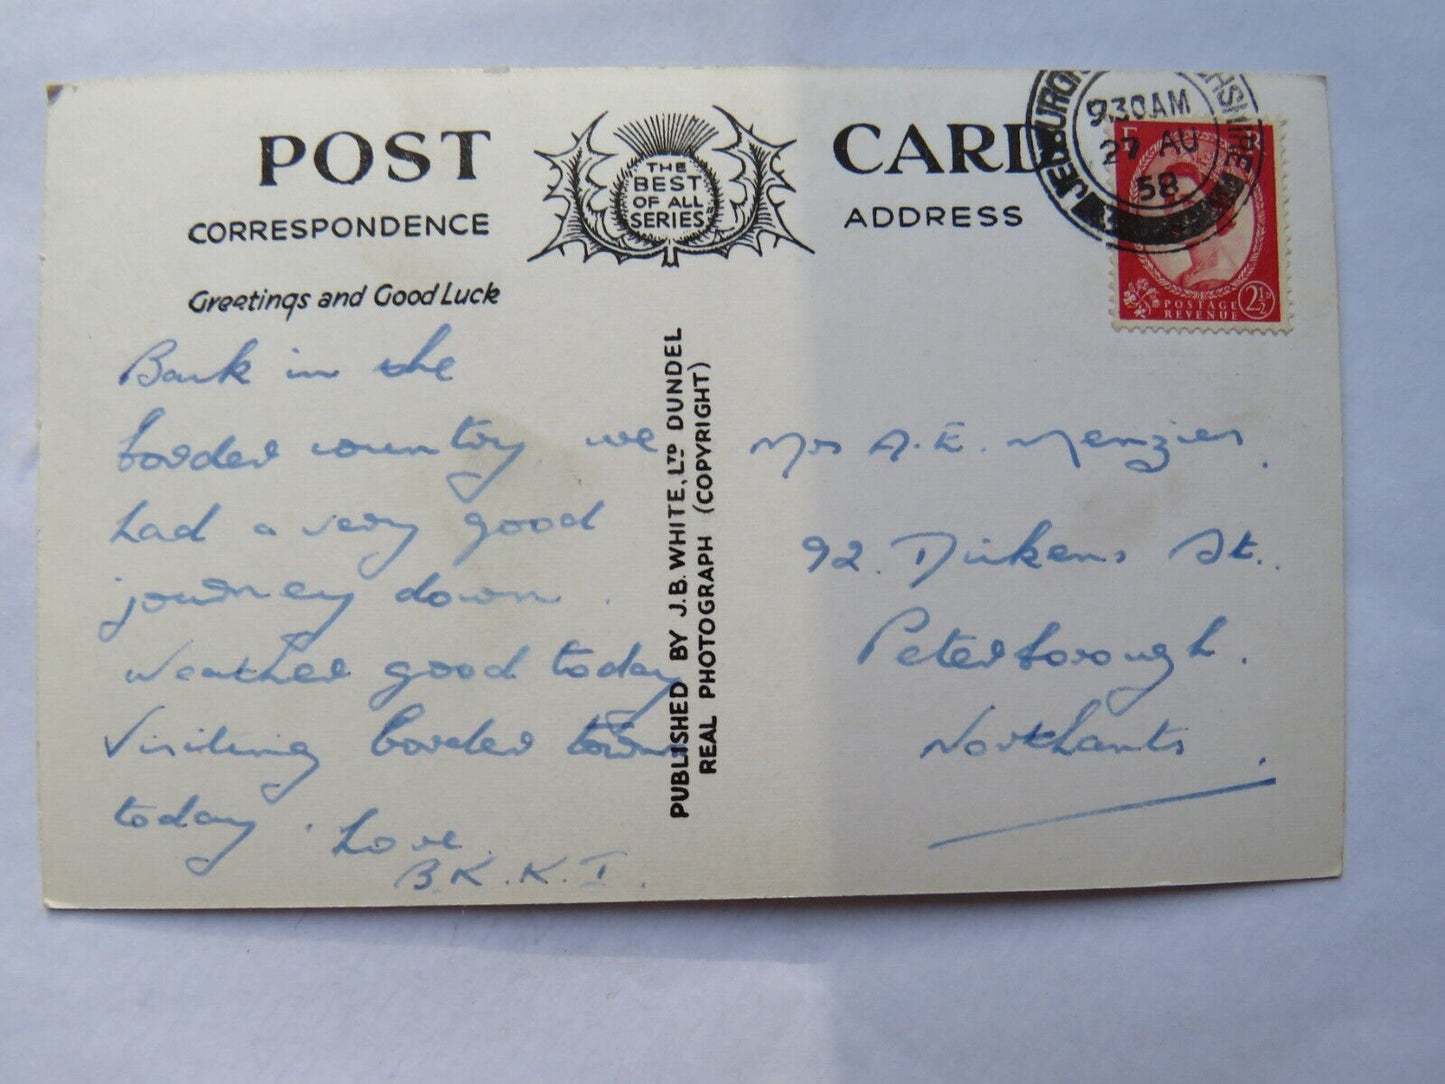 POST CARD
THE
BEST
OF ALL
SERIES
CORRESPONDENCE
ADDRESS
Greetings and Good Luck
Back in the
border country we
had a very good
journey down.
Weather good today
Visiting border towns
today. Love.
B.K.K.T.
PUBLISHED BY J.B. WHITE, LTD DUNDEE
REAL PHOTOGRAPH (COPYRIGHT)
JEDBURGH
9.30AM
27 AU
58
E R
POSTAGE
REVENUE
2½D
Mrs A.E. Menzies.
92. Dickens St.
Peterborough.
Northants.